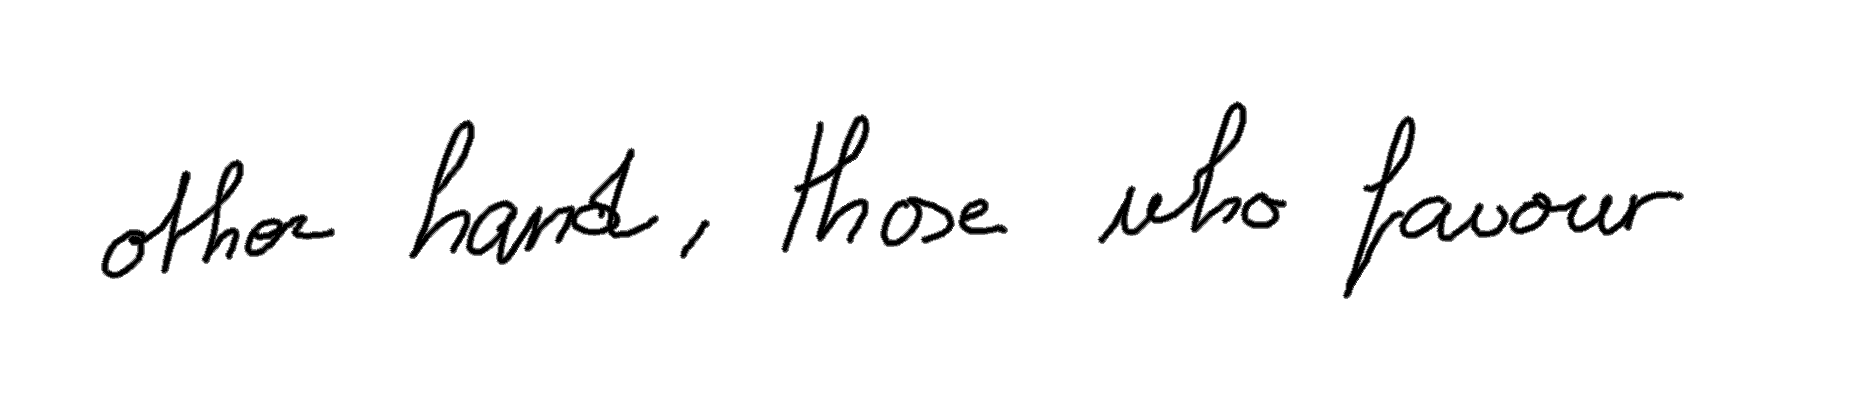 other hand, those who favour